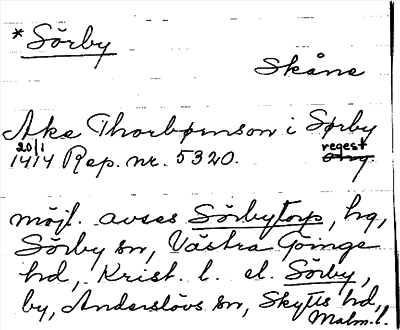 * Sörby
Skåne
Ake Thorbørnson i Sørby
20/1 1414 Rep. nr. 5320. regest
orig
möjl. avses Sörbytorp, hg,
Sörby sn, Västra Göinge
hd, Krist. l. el. Sörby,
by, Anderslövs sn, Skytts hd,
Malm. l.